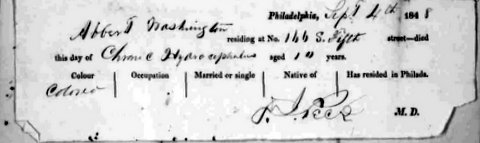 Philadelphia, Sept 4th 1848
Abbert Washington
residing at No. 166 S. Fifth street—died
this day of Chronic Hydrocephalus aged years.
Colour Occupation Married or single Native of Has resided in Philada.
Colored
M. D.